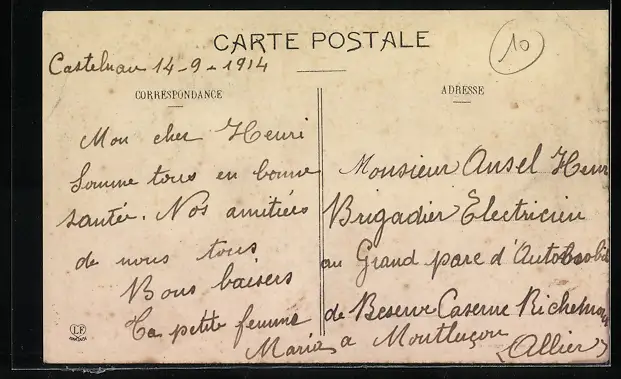 CARTE POSTALE
10
Castelnau 14-9-1914
CORRESPONDANCE
Mon cher Henri
Somme tous en bonne
santée. Nos amitiées
de nous tous
Bons baisers
Ta petite femme
Maria
ADRESSE
Monsieur Ansel Henri
Brigadier Électricien
au Grand parc d'Automobile
de Reserve Caserne Richemon
a Montluçon
(Allier)
LF